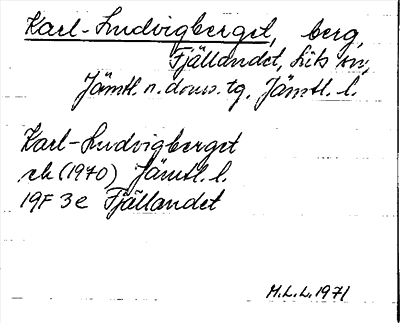 Karl-Ludvigberget, berg,
Fjällandet, Lits sn,
Jämtl. n. doms. tg, Jämtl. l.
Karl-Ludvigberget
ek (1970) Jämtl. l.
19F 3e Fjällandet
M.L.L. 1971